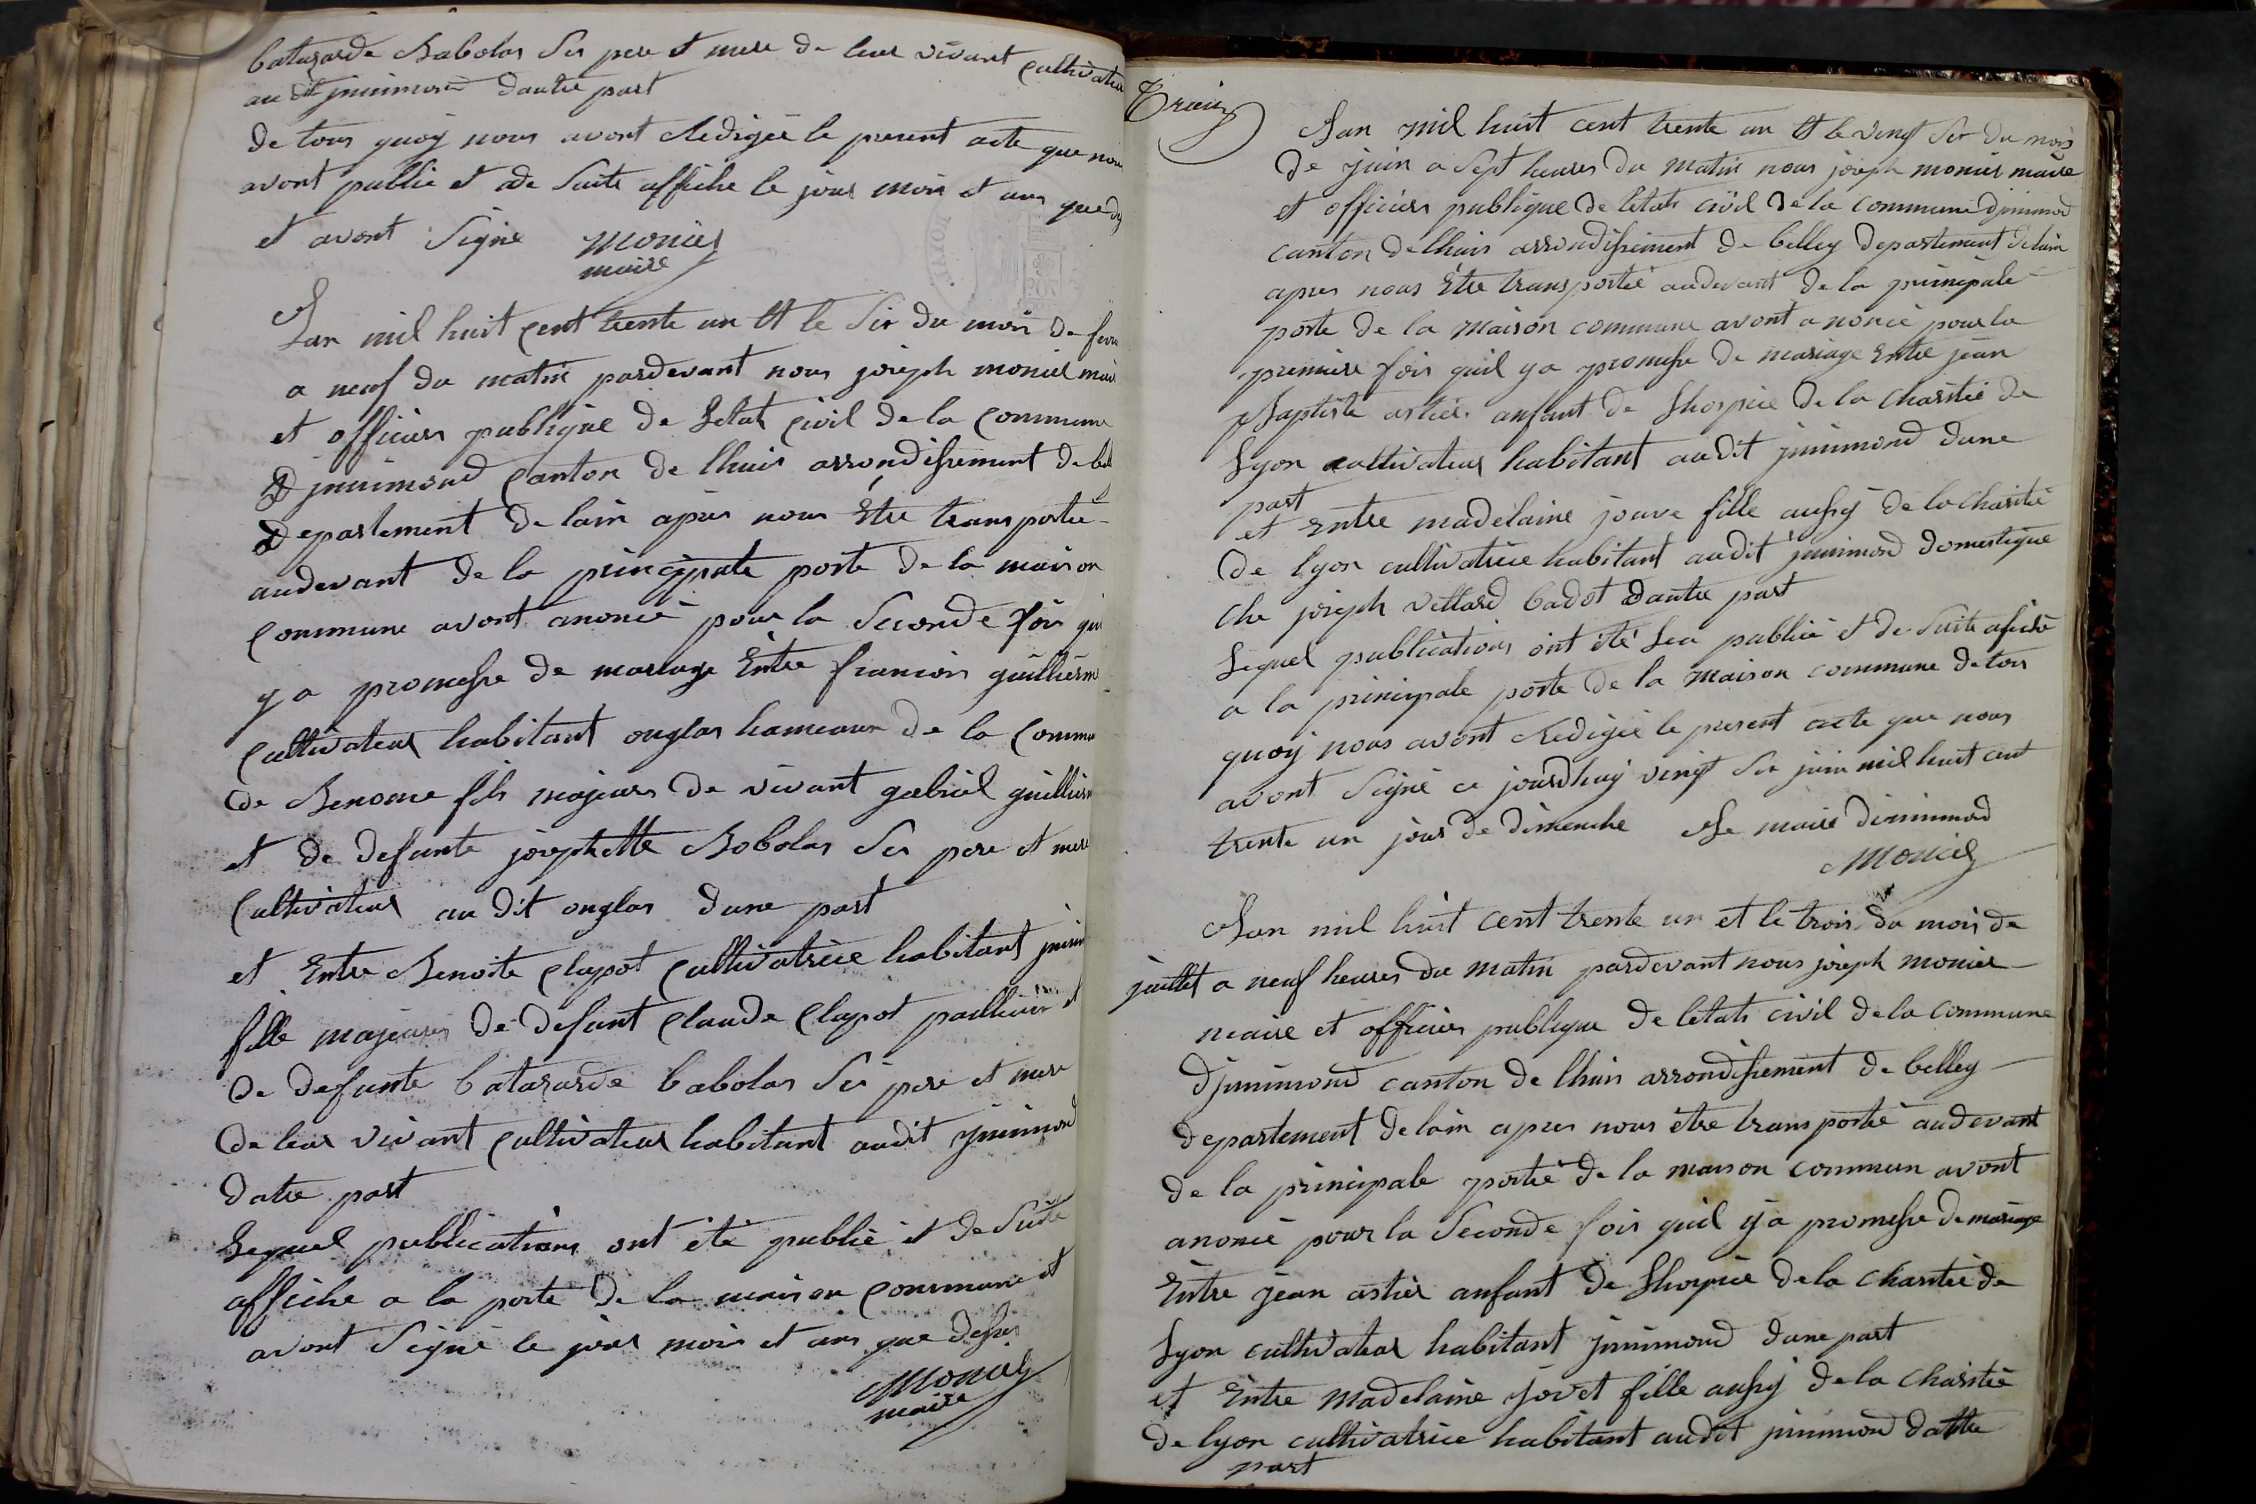 batazarde Babolas Ses pere et mere de leur vivant Cultivateu
au dit jnnimond dautre part
de tous quoy nous avont Redigée le present acte que nous
avont publié et de Suite affiche le jour mois et ans que de
et avont Signé Monier
maire
Lan mil huit Cent trente un Et le Six du mois de fevr
a neuf du matin pardevant nous joseph monier mai
et officiers publique de Letat Civil de la Commune
D jnnimond Canton de lhuis arrondissement de bel
Departement de lain apres nous Être transportée
audevant de la principale porte de la maison
Commune avont anoncé pour la Seconde fois qui
y a promesse de mariage Entre francois guillierm
Cultivateur habitant onglas hameaux de la Commu
de Benonce fils majeurs de vivant gabriel guillierm
et de defunte josephette Bobolas Ses pere et mere
Cultivateur au dit onglas dune part
et Entre Benoite Clapot Cultivatrice habitant jnnim
fille majeures de defunt Claude Clapot et
de defunte batazarde babolas Ses pere et mere
de leur vivant Cultivateur habitant audit jnnimond
datre part
Lequel publications ont été publié et de Suite
affiche a la porte de la maison Commune et
avont Signé le jour mois et ans que dessus
Monier
maire
Lan mil huit cent trente un Et le vingt Six du mois
de juin a Sept heures du matin nous joseph monier maire
et officiers publique de létat civil de la commune djnnimond
canton de lhuis arrondissement de belley departement delain
apres nous Être transportée audevant de la principale
porte de la maison commune avont anoncé pour la
premiere fois quil y a promesse de mariage Entre jean
Baptiste astier anfant de Lhospice de la charitée de
Lyon cultivateur habitant audit jnnimond dune
part
et Entre madelaine jouve fille aussy de la charitée
de lyon cultivatrice habitant audit jnnimond domestique
che joseph villard badot dautre part
Lequel publications ont été Lea publiée et de Suite afiché
a la principale porte de la maison commune de tous
quoy nous avont Redigée le present acte que nous
avont Signé ce jourdhuy vingt Six juin mil huit cent
trente un jour de dimenche Le maire dinnimond
Monier
Lan mil huit cent trente un et le trois du mois de
juillet a neuf heures du matin pardevant nous joseph monier
maire et officier publique de létats civil de la commune
Djnnimond canton de lhuis arrondissement de belley
departement delain apres nous être transportée audevant
de la principale porte de la maison commun avont
anoncé pour la Seconde fois quil y a promesse de mariage
Entre jean astier anfant de Lhospice de la charitée de
Lyon cultivateur habitant jnnimond dune part
et Entre madelaine jovet fille aussy de la charitée
de lyon cultivatrice habitant audit jnnimond dattre
part